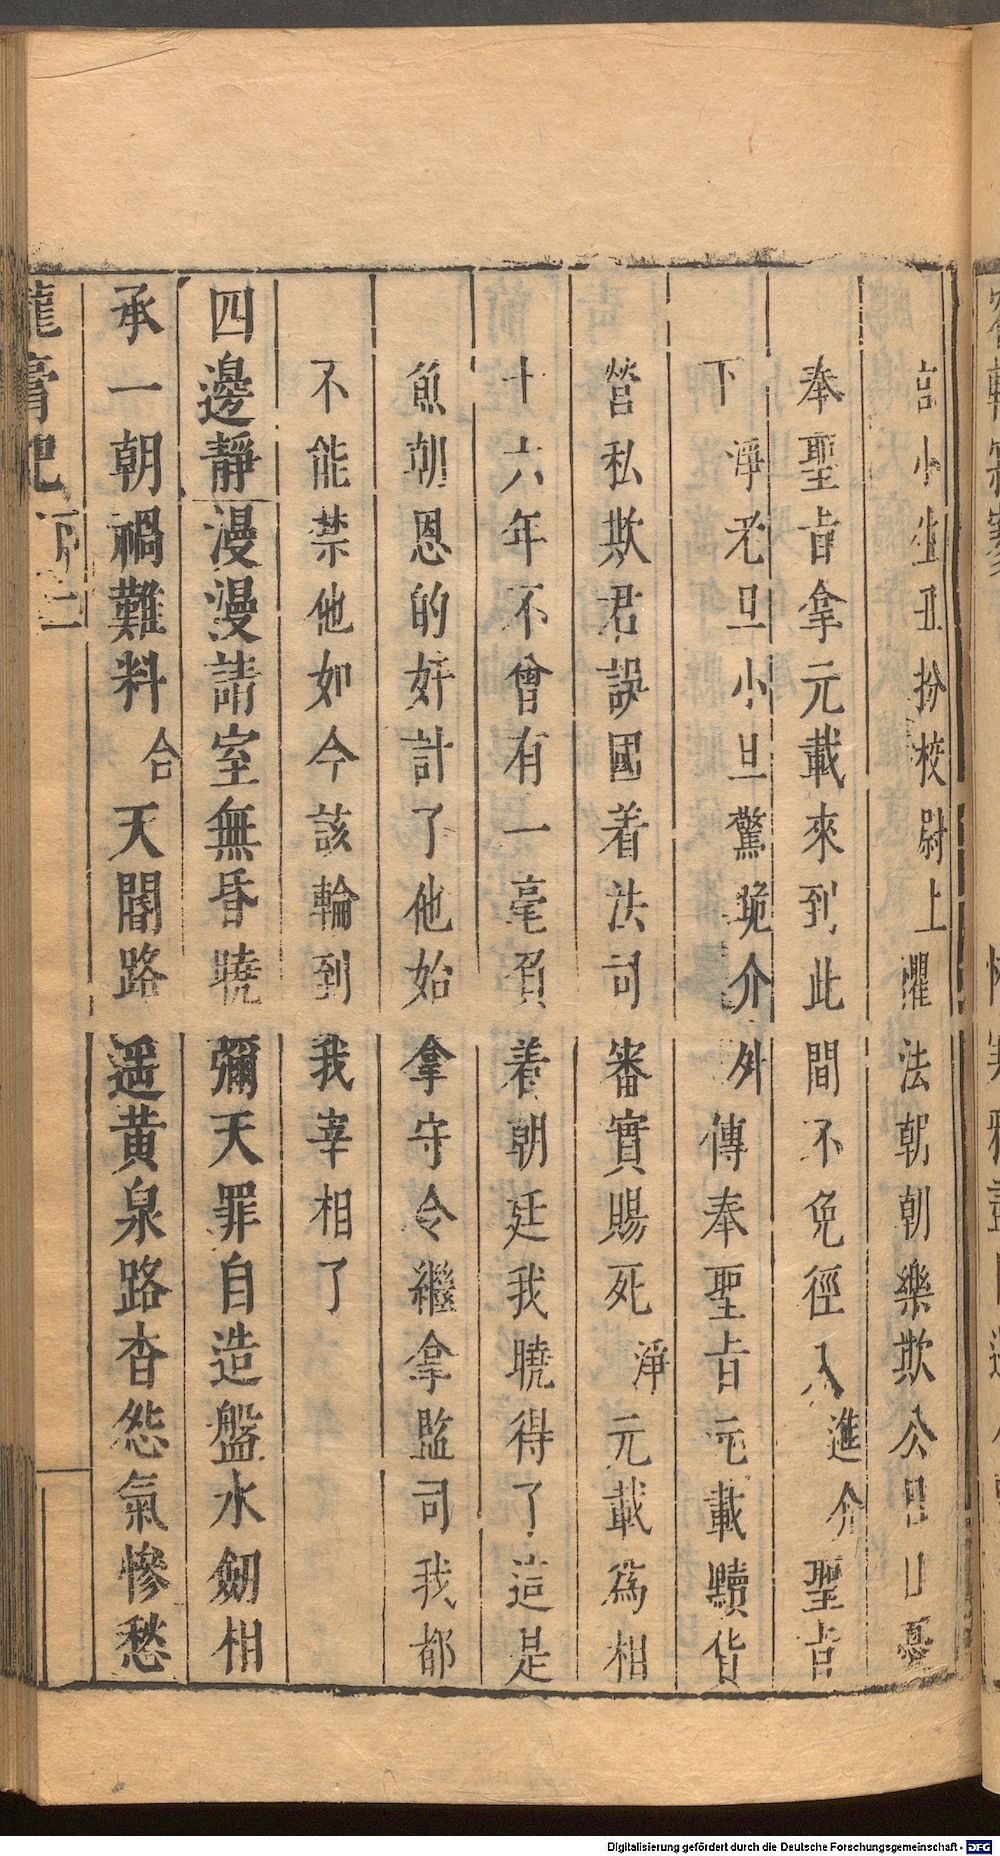 宮小生丑扮校尉上懼法朝朝樂欺公日日憂
奉聖旨拿元載來到此間不免徑入進介聖旨
下淨老旦小旦驚跪介外傳奉聖旨元載黷貨
營私欺君誤國着法司審實賜死淨元載爲相
十六年不曾有一毫負着朝廷我曉得了這是
魚朝恩的奸計了他始拿守令繼拿監司我都
不能禁他如今該輪到我宰相了
四邊靜漫漫請室無昏曉彌天罪自造盤水劒相
承一朝禍難料合天閽路遥黃泉路杳怨氣慘愁
龍膏記 下 二
Digitalisierung gefördert durch die Deutsche Forschungsgemeinschaft - DFG